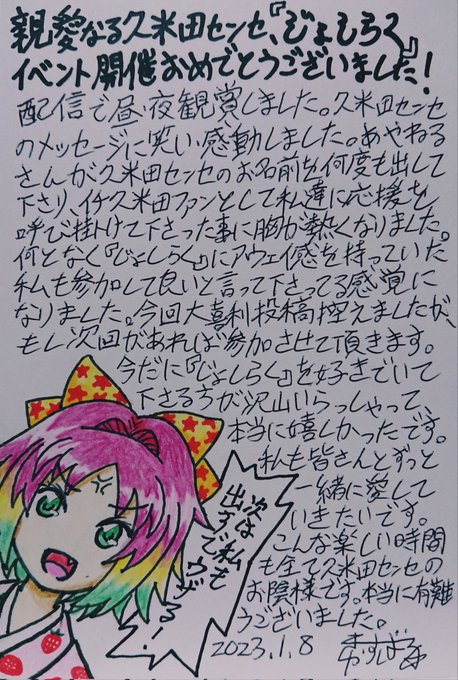 親愛なる久米田センセ、『じょしらく』
イベント開催おめでとうございました!
配信で昼・夜観賞しました。久米田センセ
のメッセージに笑い・感動しました。あやねる
さんが久米田センセのお名前を何度も出して
下さり、イチ久米田ファンとして私達に応援を
呼び掛けて下さった事に胸が熱くなりました。
何となく『じょしらく』にアウェイ感を持っていた
私も参加して良いと言って下さってる感覚に
なりました。今回大喜利投稿控えましたが、
もし次回があれば参加させて頂きます。
今だに『じょしらく』を好きでいて
下さる方が沢山いらっしゃって、
本当に嬉しかったです。
私も皆さんとずっと
一緒に愛して
いきたいです。
こんな楽しい時間
も全て久米田センセの
お陰様です。本当に有難
うございました。
2023.1.8
次は
出すで私も
ウキる!